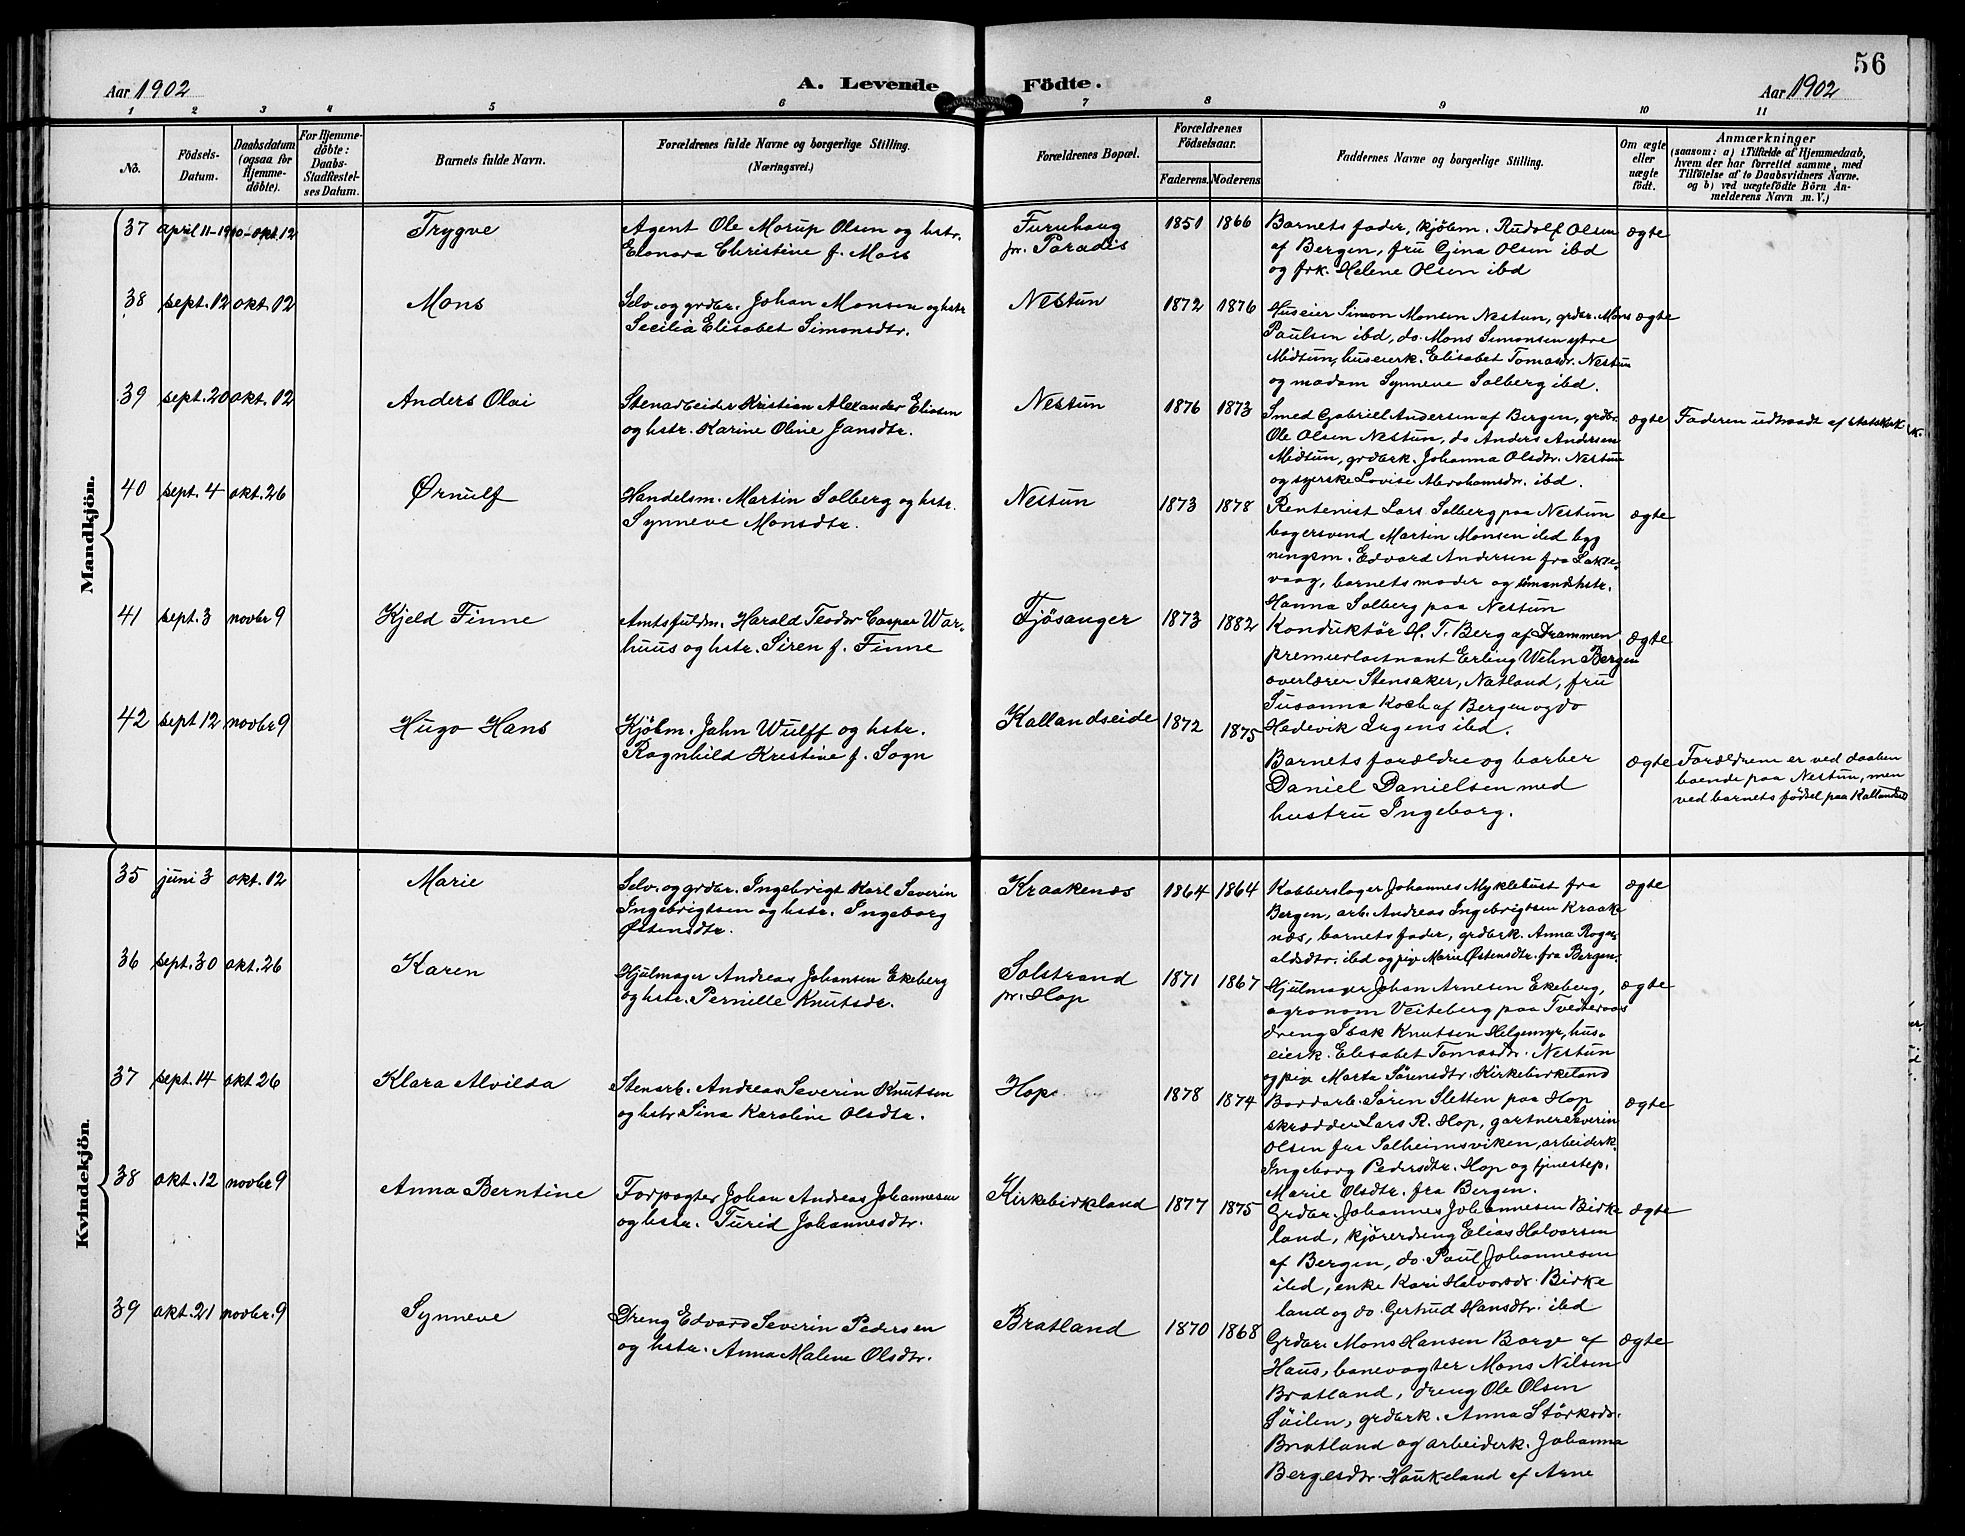 56
Aar 1902
A. Levende Födte.
Aar 1902
1 2 3 4 5 6 7 8 9 10 11
No.
Födsels-
Datum.
Daabsdatum
(ogsaa for
Hjemme-
döbte).
For Hjemme-
döbte:
Daabs-
Stadfæstel-
ses Datum.
Barnets fulde Navn.
Forældrenes fulde Navne og borgerlige Stilling.
(Næringsvei.)
Forældrenes Bopæl.
Forældrenes
Födselsaar.
Faderens. Moderens
Faddernes Navne og borgerlige Stilling.
Om ægte
eller
uægte
födt.
Anmærkninger
(saasom: a) i Tilfælde af Hjemmedaab,
hvem der har forrettet samme, med
Tilföielse af to Daabsvidners Navne.
og b) ved uægtefödte Börn An-
melderens Navn m. V.)
Mandkjön.
37 april 11-1900- okt. 12
Trygve
Agent Ole Morup Olsen og hstr.
Elonora Christine f. Moss
Furuhaug
pr. Paradis
1851 1866
Barnets fader, kjøbm. Rudolf Olsen
af Bergen, fru Gina Olsen ibd
og frk. Helene Olsen ibd
ægte
38 sept. 12 okt. 12
Mons
Selv. og grdbr. Johan Monsen og hstr
Secilia Elisabet Simonsdtr.
Nestun
1872 1876
Huseier Simon Monsen Nestun, grdbr. Mons
Paulsen ibd, do. Mons Simonsen ytre
Midtun, huseierk. Elisabet Tomasdr. Nestun
og madam Synneve Solberg ibd.
ægte
39 sept. 20 okt. 12
Anders Olai
Stenarbeider Kristian Alexander Eliasen
og hstr. Karine Oline Jansdtr.
Nestun
1876 1873
Smed Gabriel Andersen af Bergen, grdbr.
Ole Olsen Nestun, do Anders Andersen
Midtun, grdbrk. Johanna Olsdtr. Nestun
og syerske Lovise Abrahamsdr. ibd.
ægte
Faderen udtraadt af statskirk
40 sept. 4 okt. 26
Ørnulf
Handelsm. Martin Solberg og hstr.
Synneve Monsdtr.
Nestun
1873 1878
Rentenist Lars Solberg paa Nestun
bagersvend Martin Monsen ibd byg
ningsm. Edvard Andersen fra Lakse-
vaag, barnets moder og smandshstr.
Hanna Solberg paa Nestun
ægte
41 sept. 3 novbr 9
Kjeld Finne
Amtsfuldm. Harald Teodor Caspar War-
huus og hstr. Siren f. Finne
Fjøsanger
1873 1882
Konduktør H. T. Berg af Drammen,
premierløitnant Erling Wehn Bergen
overlærer Stensaker, Natland, fru
Susanna Koch af Bergen og do
Hedevik Irgens ibd.
ægte
42 sept 12 novbr 9
Hugo Hans
Kjøbm. Jahn Wulff og hstr.
Ragnhild Kristine f. Sogn
Kallandseide
1872 1875
Barnets forældre og barber
Daniel Danielsen med
hustru Ingeborg.
ægte
Forældrene er ved daaben
boende paa Nestun, men
ved barnets fødsel paa Kallandseid
Kvindekjön.
35 juni 3 okt. 12
Marie
Selv. og grdbr. Ingebrigt Karl Severin
Ingebrigtsen og hstr. Ingeborg
Østensdtr.
Kraakenæs
1864 1864
Kobberslager Johannes Myklebust fra
Bergen, arb. Andreas Ingebrigtsen Kraake
næs, barnets fader, grdbrk. Anna Rogn-
aldsdtr. ibd og pige Marie Østensdtr. fra Bergen.
ægte
36 sept. 30 okt. 26
Karen
Hjulmager Andreas Johansen Ekeberg
og hstr. Pernille Knutsdr.
Solstrand
pr. Hop
1871 1867
Hjulmager Johan Arnesen Ekeberg,
agronom Veiteberg paa Tvedteraas
dreng Isak Knutsen Helgemyr, hus-
eierk. Elisabet Tomasdtr. Nestun
og pige Marta Sørensdtr. Kirkebirkeland
ægte
37 sept. 14 okt 26
Klara Alvilda
Stenarb. Andreas Severin Knutsen
og hstr. Sina Karoline Olsdtr.
Hop
1878 1874
Bordarb. Søren Sletten paa Hop
skrædder Lars R. Hop, gartner Severin
Olsen fra Solheimsviken, arbeiderk.
Ingeborg Pedersdtr. Hop og tjenestep.
Marie Olsdtr. fra Bergen.
ægte
38 okt. 12 novbr 9
Anna Berntine
Forpagter Johan Andreas Johannesen
og hstr. Turid Johannesdtr.
Kirkebirkeland
1877 1875
Grdbr. Johannes Johannesen Birke
land, kjøredreng Elias Halvorsen
af Bergen, do. Paul Johannesen
ibd, enke Kari Halvorsdr. Birke
land og do. Gertrud Hansdtr. ibd
ægte
39 okt. 21 novbr. 9
Synneve
Dreng Edvard Severin Pedersen
og hstr. Anna Malene Olsdtr.
Bratland
1870 1868
Grdbr. Mons Hansen Borge af
Haus, banevogter Mons Nilsen
Bratland, dreng Ole Olsen
Søilen, grdbrk. Anna Størksdr.
Bratland og arbeiderk. Johanna
Bergesdtr. Haukeland af Arne
ægte